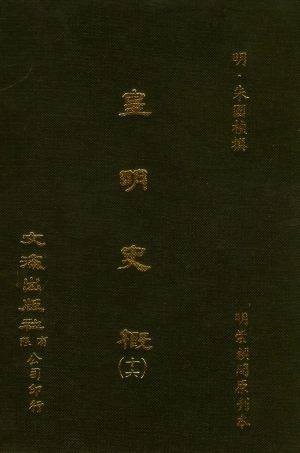 明·朱國禎撰
明崇禎間原刊本
皇明史概(十六)
文海出版社有限公司印行